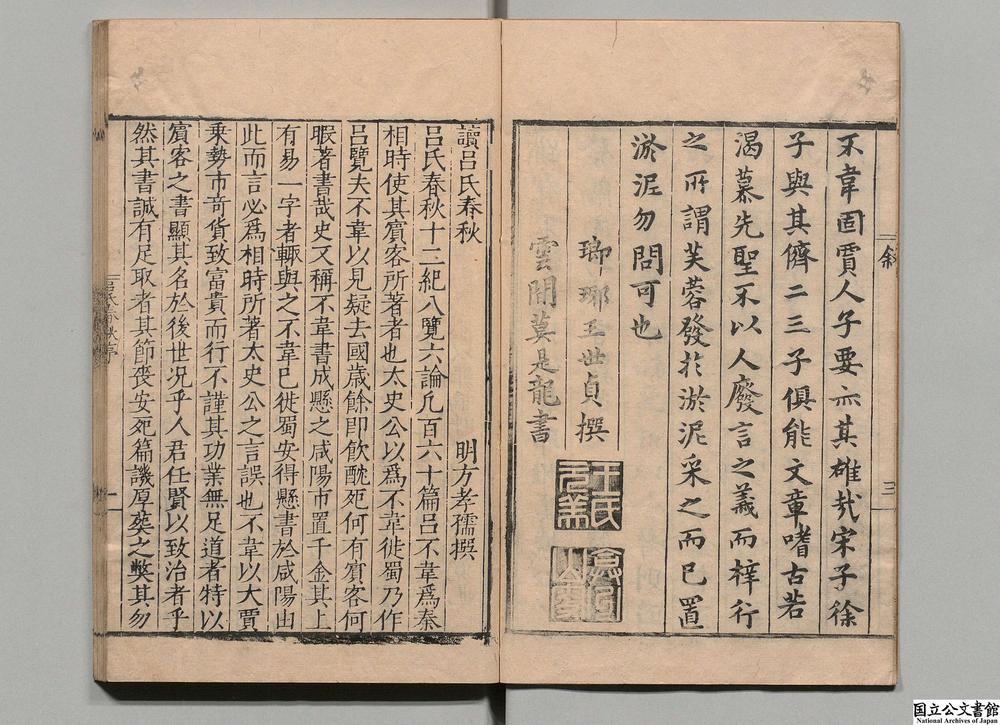 敘
三
不韋固賈人子要亦其雄哉宋子徐
子與其儕二三子俱能文章嗜古若
渴慕先聖不以人廢言之義而梓行
之所謂芙蓉發於淤泥采之而已置
淤泥勿問可也
瑯琊王世貞撰
雲間莫是龍書
王氏元美
讀呂氏春秋
明方孝孺撰
呂氏春秋十二紀八覽六論凡百六十篇呂不韋為秦
相時使其賓客所著者也太史公以為不韋徙蜀乃作
呂覽夫不韋以見疑去國歲餘即飲酖死何有賓客何
暇著書哉史又稱不韋書成懸之咸陽市置千金其上
有易一字者輙與之不韋已徙蜀安得懸書於咸陽由
此而言必爲相時所著太史公之言誤也不韋以大賈
乗勢市奇貨致富貴而行不謹其功業無足道者特以
賔客之書顯其名於後世况乎人君任賢以致治者乎
然其書誠有足取者其節喪安死篇譏厚葬之弊其勿
呂氏春秋序
一
国立公文書館
National Archives of Japan